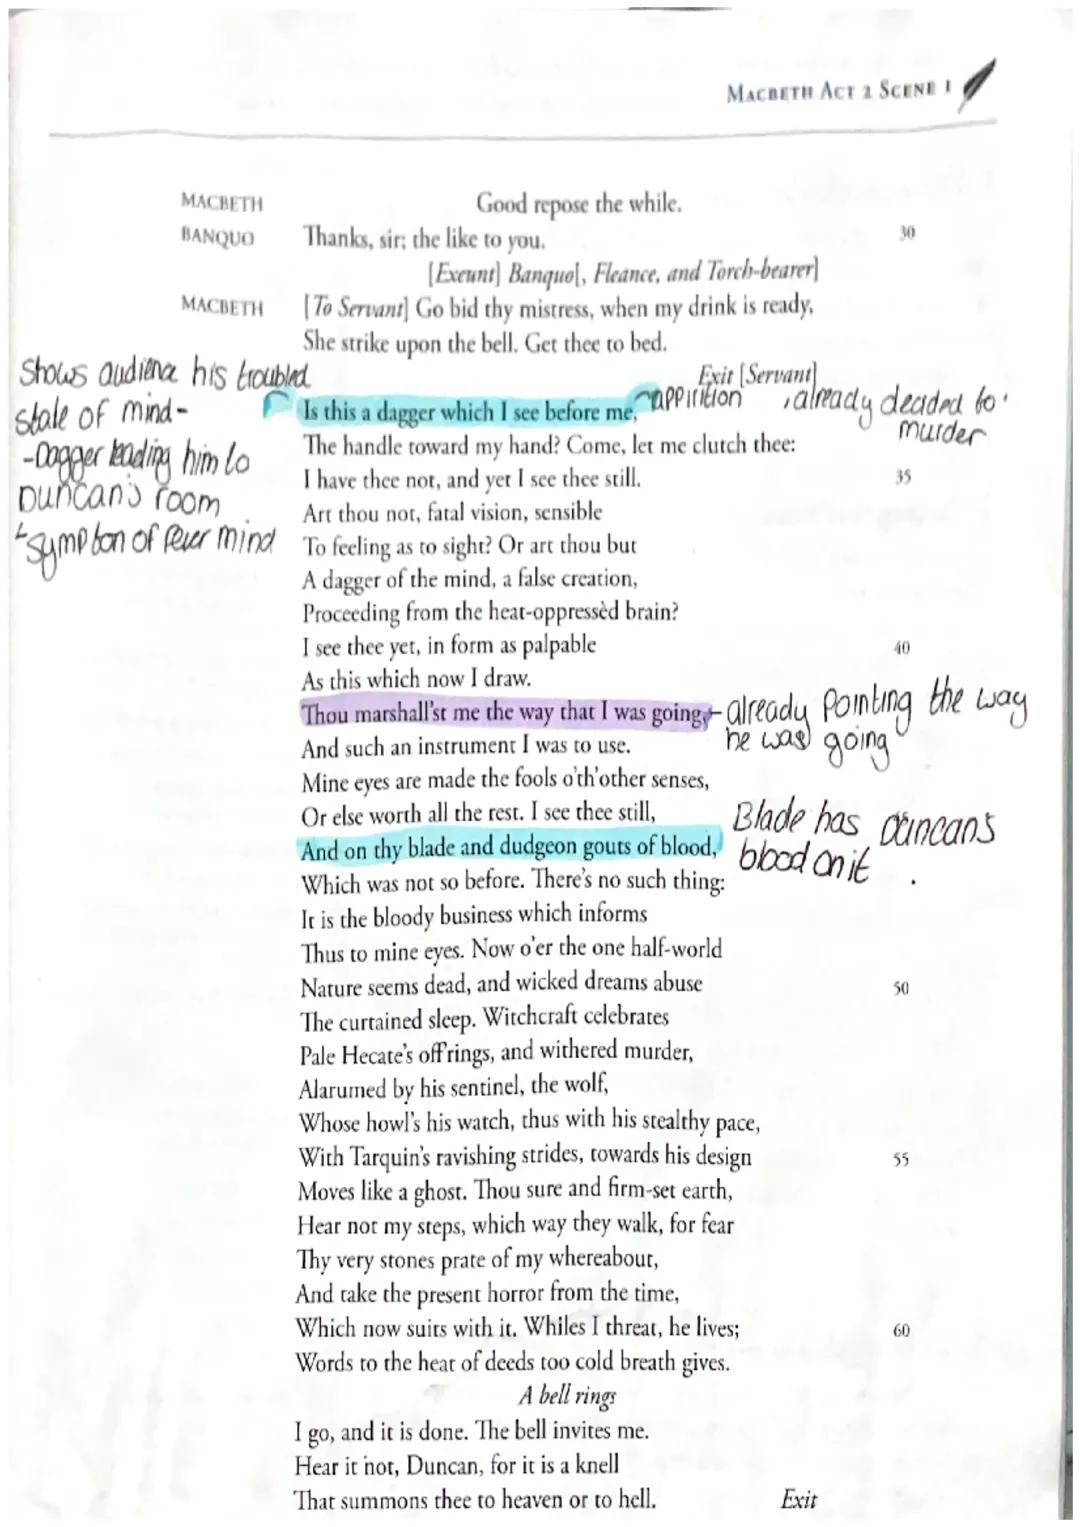 MACBETH ACT 2 SCENE 1
MACBETH Good repose the while.
BANQUO Thanks, sir; the like to you. 30
[Exeunt] Banquo[, Fleance, and Torch-bearer]
MACBETH [To Servant] Go bid thy mistress, when my drink is ready,
She strike upon the bell. Get thee to bed.
Exit [Servant]
Shows audience his troubled
state of mind-
-Dagger leading him to
Duncan's room
symptom of fever mind
Is this a dagger which I see before me,
appirition , already decided to
murder
The handle toward my hand? Come, let me clutch thee:
I have thee not, and yet I see thee still. 35
Art thou not, fatal vision, sensible
To feeling as to sight? Or art thou but
A dagger of the mind, a false creation,
Proceeding from the heat-oppressèd brain?
I see thee yet, in form as palpable 40
As this which now I draw.
Thou marshall'st me the way that I was going,
- already pointing the way
he was going
And such an instrument I was to use.
Mine eyes are made the fools o'th'other senses,
Or else worth all the rest. I see thee still,
And on thy blade and dudgeon gouts of blood,
Blade has Duncan's
blood on it .
Which was not so before. There's no such thing:
It is the bloody business which informs
Thus to mine eyes. Now o'er the one half-world
Nature seems dead, and wicked dreams abuse 50
The curtained sleep. Witchcraft celebrates
Pale Hecate's off'rings, and withered murder,
Alarumed by his sentinel, the wolf,
Whose howl's his watch, thus with his stealthy pace,
With Tarquin's ravishing strides, towards his design 55
Moves like a ghost. Thou sure and firm-set earth,
Hear not my steps, which way they walk, for fear
Thy very stones prate of my whereabout,
And take the present horror from the time,
Which now suits with it. Whiles I threat, he lives; 60
Words to the heat of deeds too cold breath gives.
A bell rings
I go, and it is done. The bell invites me.
Hear it not, Duncan, for it is a knell
That summons thee to heaven or to hell. Exit